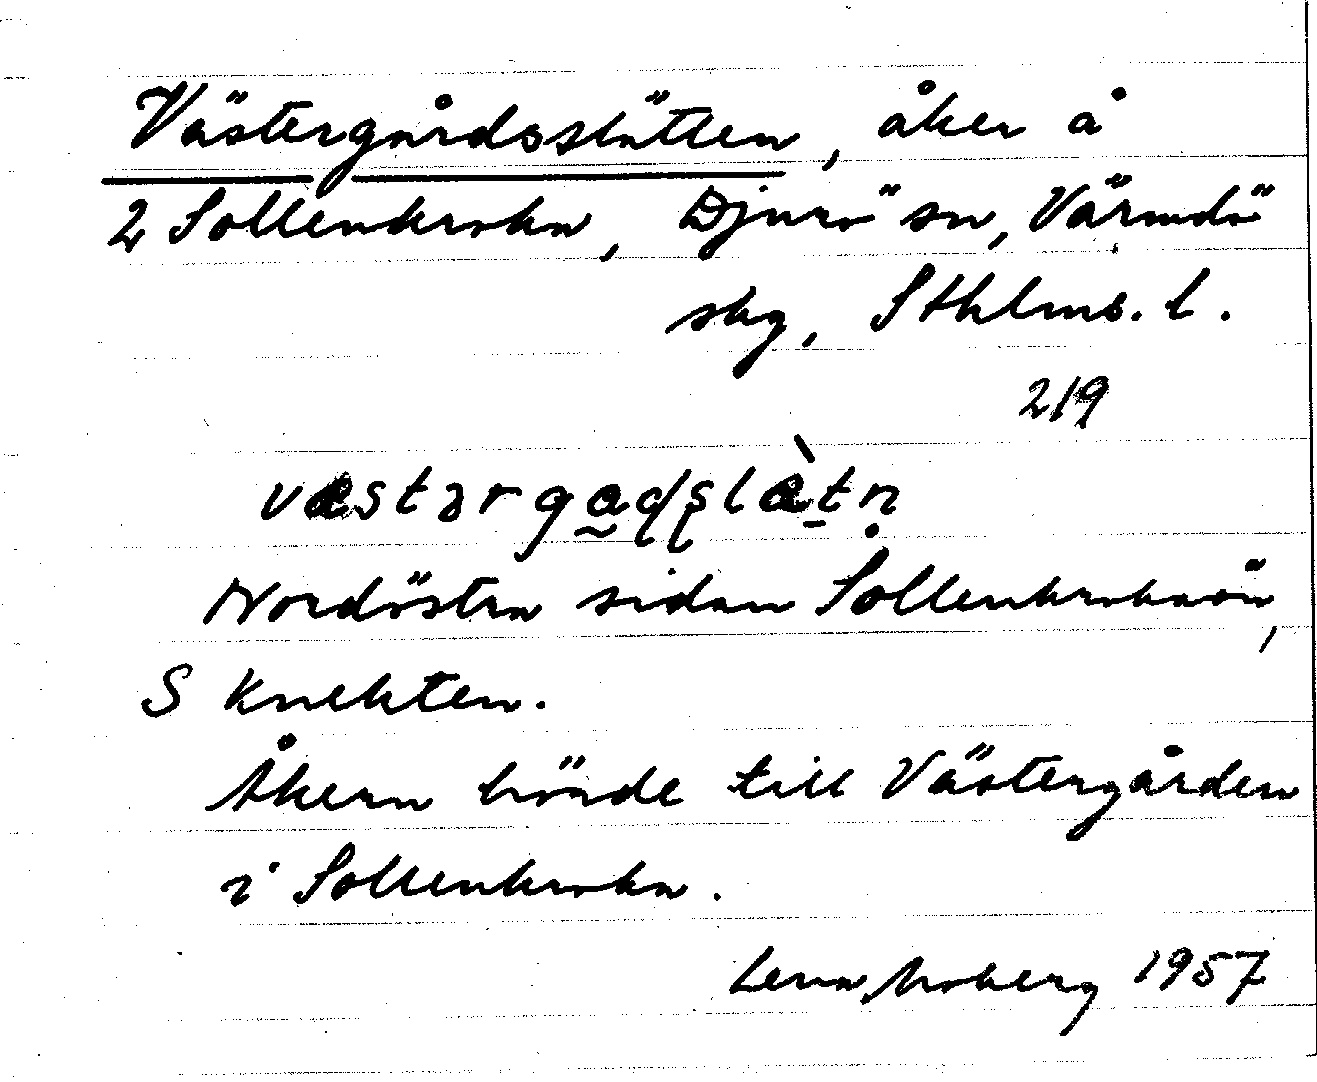 Västergårdsslätten, åker å
2 Sollenkroka, Djurö sn, Värmdö
skg, Sthlms. l.
219
væstərga̰ɖʂlæ̀tn̥
Nordöstra sidan Sollenkrokaön,
S Knekten.
Åkern hörde till Västergården
i Sollenkroka.
Lena Moberg 1957